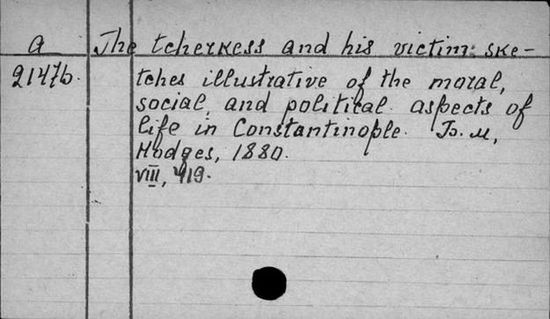 a The tcherkess and his victim: ske-
21476. tches illustrative of the moral,
social and political aspects of
life in Constantinople. B. M,
Hodges, 1880.
VIII, 419.